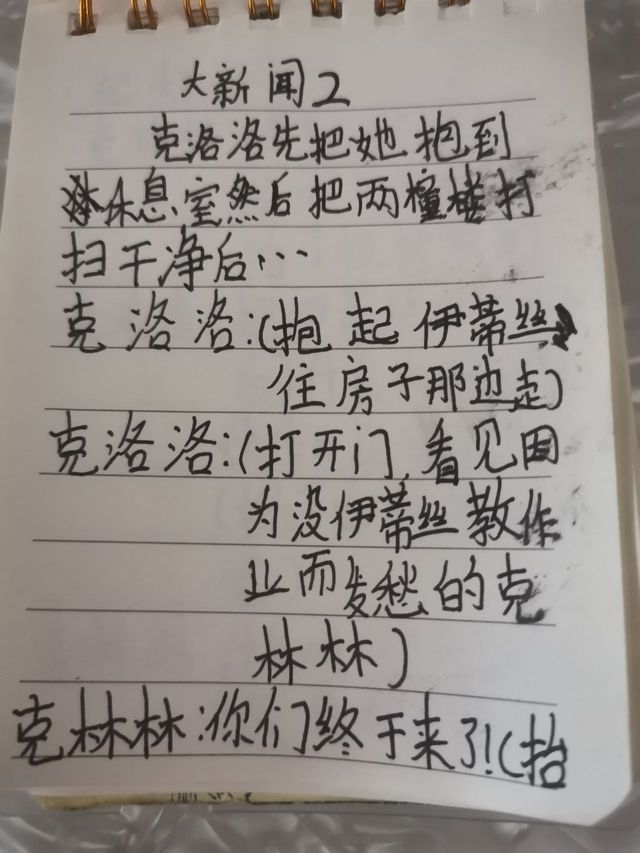 大新闻2
克洛洛先把她抱到
休息室然后把两幢楼打
扫干净后…
克洛洛:(抱起伊蒂丝
住房子那边走)
克洛洛:(打开门,看见因
为没伊蒂丝教作
业而发愁的克
林林)
克林林:你们终于来了!(抬